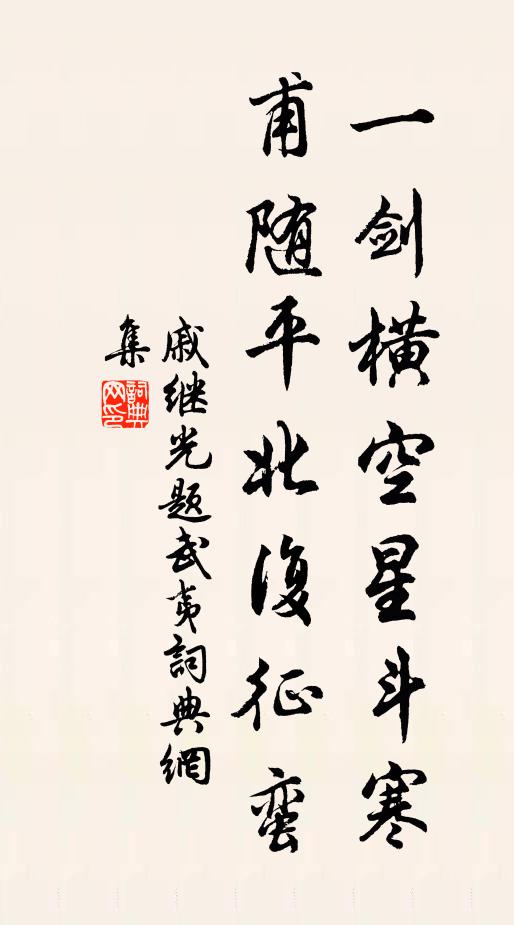 一剑横空星斗寒
甫随平北復征蛮
戚继光题武夷詞典網
集
詞典
网印